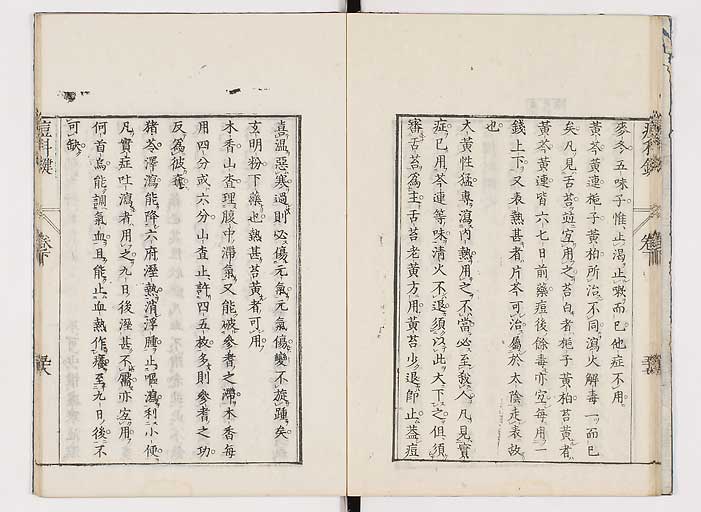 麥冬五味子惟止渴止嗽而已他症不用
黃芩黃連梔子黃柏所治不同瀉火解毒一而已
矣凡見舌苔竝宜用之苔白者梔子黃柏苔黃者
黃芩黃連皆六七日前藥痘後餘毒亦宜每用一
錢上下又表熱甚者片芩可治屬於太陰走表故
也
大黃性猛專瀉内熱用之不當必至殺人凡見實
症已用芩連等味清火不退須以此大下之但須
審舌苔爲主舌苔老黃方用黃苔少退即止葢痘
喜溫惡寒過則必傷元氣元氣傷變不旋踵矣
玄明粉下藥也熱甚苔黃者可用
木香山査理腹中滯氣又能破參耆之滯木香每
用四分或六分山査止許四五故多則參耆之功
反爲彼奪
猪苓澤瀉能降六府溼熱消浮腫止嘔瀉利小便
凡實症吐瀉者用之九日後溼甚不儞亦宜用
何首烏能調氣血且能止血熱作癢至九日後不
可缺
痘科鍵
卷下